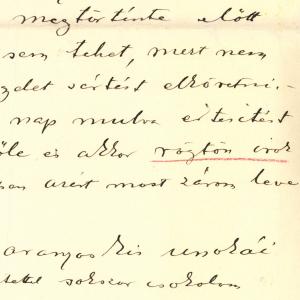 megtörténte előtt
sem tehet, mert nem
zdet sértést elkövetni.-
nap mulva értesitést
őle és akkor rögtön irok
azért most zárom leve
aranyos kis unokái
sokszor csokolom